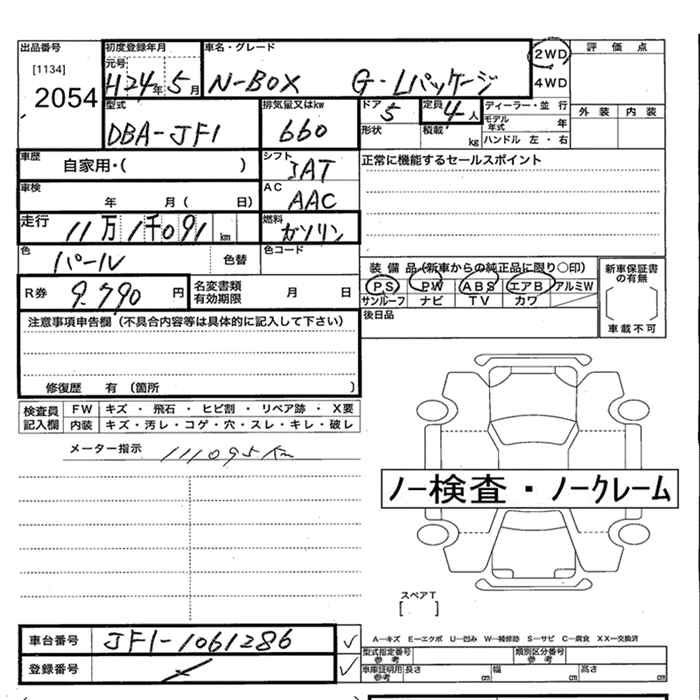 出品番号 初度登録年月 車名・グレード 2WD 評価点
[1134] 元号 H24年5月 N-BOX G・Lパッケージ 4WD
2054 型式 排気量又はkw ドア 定員 ディーラー・並 行 外装 内装
DBA-JF1 660 5 4人 モデル年式 年
形状 積載 kg ハンドル 左・右
車歴 自家用・( ) シフト IAT 正常に機能するセールスポイント
車検 年 月( 日) AC AAC
走行 11万1千091km 燃料 ガソリン
色 パール 色替 色コード 装備品(新車からの純正品に限り○印) 新車保証書の有無
R券 9.790円 名変書類有効期限 月 日 PS PW ABS エアB アルミW
サンルーフ ナビ TV カワ
注意事項申告欄(不具合内容等は具体的に記入して下さい) 後日品 車載不可
修復歴 有(箇所 )
検査員 FW キズ・飛石・ヒビ割・リペア跡・X要
記入欄 内装 キズ・汚レ・コゲ・穴・スレ・キレ・破レ
メーター指示 111095km
ノー検査・ノークレーム
スペアT
[ ]
車台番号 JF1-1061286 A-キズ E-エクボ U-凹み W-補修跡 S-サビ C-腐食 XX-交換済
型式指定番号参考 類別区分番号参考
登録番号 車庫証明用参考 長さ cm 幅 cm 高さ cm